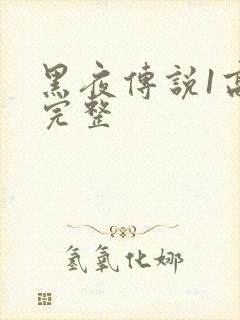 黑夜傳説1高
完整
氢氧化娜